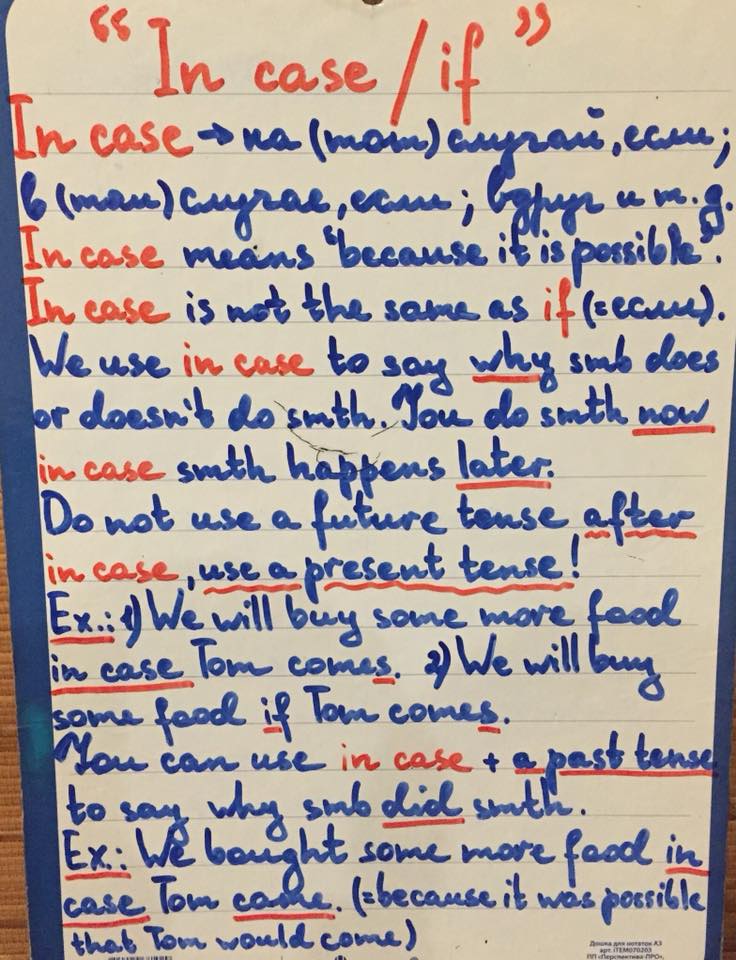 “In case / if”
In case → на (тот) случай, если;
в (том) случае, если; вдруг и т.д.
In case means "because it is possible".
In case is not the same as if (=если).
We use in case to say why smb does
or doesn't do smth. You do smth now
in case smth happens later.
Do not use a future tense after
in case, use a present tense!
Ex.: 1) We will buy some more food
in case Tom comes. 2) We will buy
some food if Tom comes.
You can use in case + a past tense
to say why smb did smth.
Ex.: We bought some more food in
case Tom came. (=because it was possible
that Tom would come)
Дошка для нотаток А3
арт. ITEM070203
ПП «Перспектива-ПРО»,